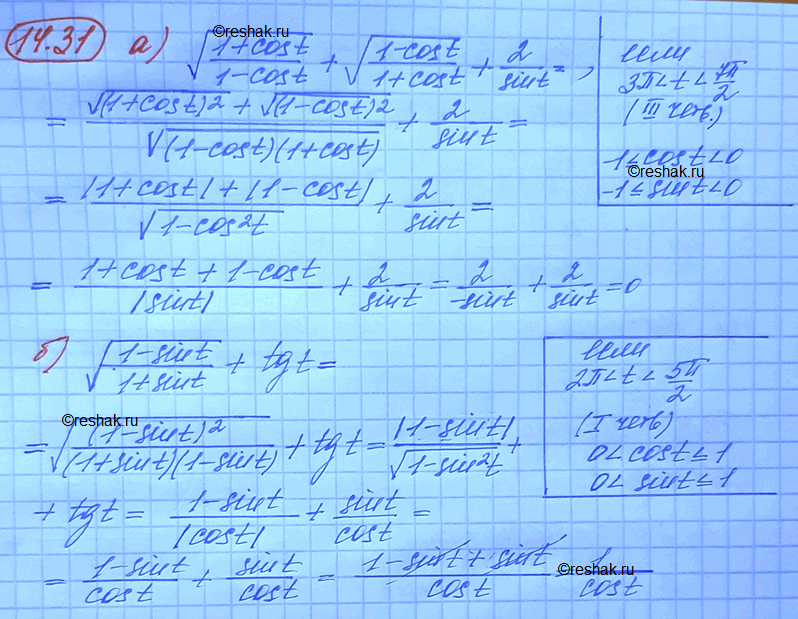 14.31 а) √((1+cost)/(1-cost)) + √((1-cost)/(1+cost)) + 2/sint = ,
©reshak.ru
= (√(1+cost)² + √(1-cost)²)/√((1-cost)(1+cost)) + 2/sint =
= (|1+cost| + |1-cost|)/√(1-cos²t) + 2/sint =
= (1+cost+1-cost)/|sint| + 2/sint = 2/-sint + 2/sint = 0
если
3π<t<7π/2
(III четв.)
-1<cost<0
©reshak.ru
-1≤sint<0
б) √((1-sint)/(1+sint)) + tgt =
©reshak.ru
= √((1-sint)²/((1+sint)(1-sint))) + tgt = |1-sint|/√(1-sin²t) +
+ tgt = (1-sint)/|cost| + sint/cost =
= (1-sint)/cost + sint/cost = (1-sint+sint)/cost = 1/cost
©reshak.ru
если
2π<t<5π/2
(I четв)
0<cost≤1
0<sint≤1